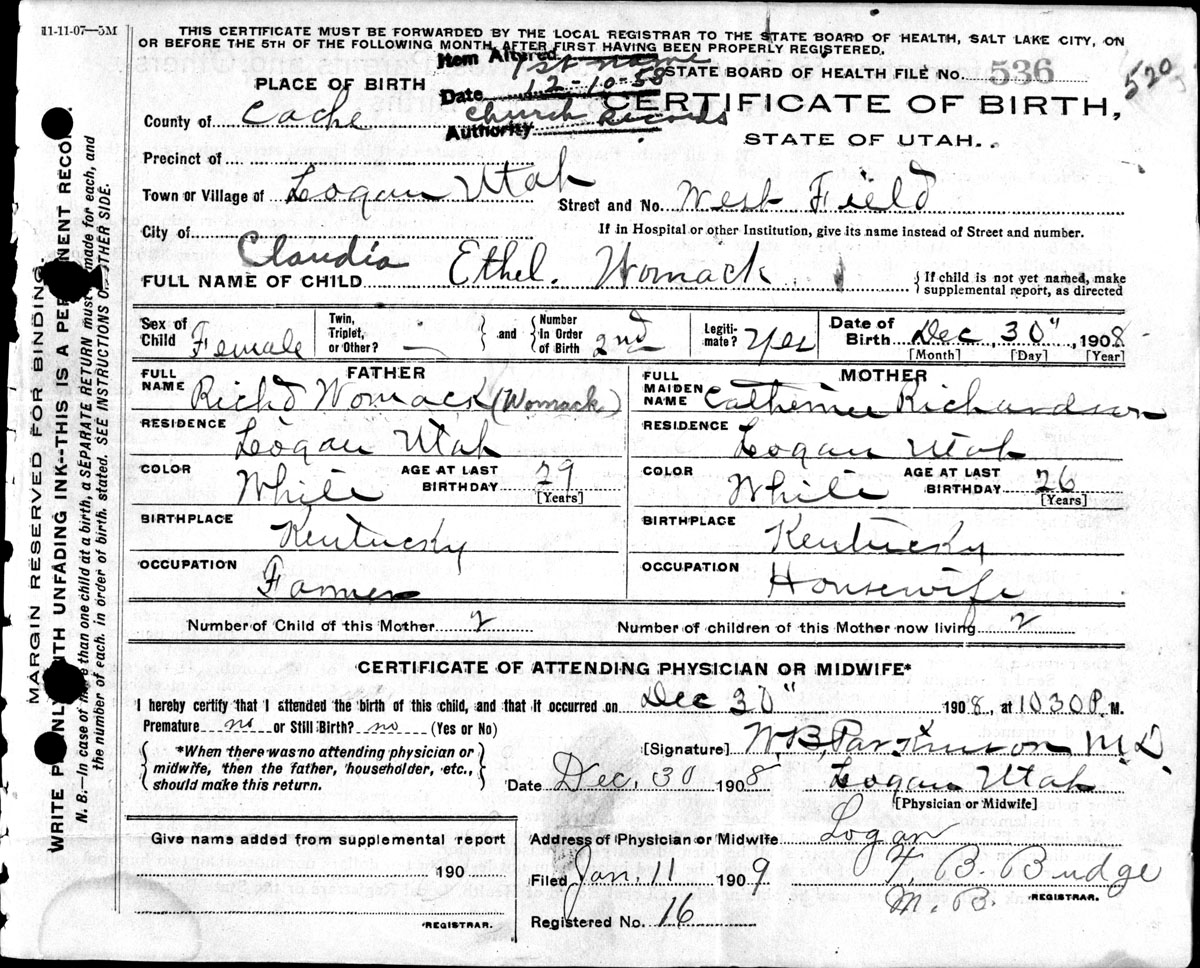 11-11-07—5M
THIS CERTIFICATE MUST BE FORWARDED BY THE LOCAL REGISTRAR TO THE STATE BOARD OF HEALTH, SALT LAKE CITY, ON
OR BEFORE THE 5TH OF THE FOLLOWING MONTH, AFTER FIRST HAVING BEEN PROPERLY REGISTERED.
Item Altered 1st name
STATE BOARD OF HEALTH FILE No. 536 520
PLACE OF BIRTH
Date 12-10-58
CERTIFICATE OF BIRTH,
County of Cache
Authority Church Records
STATE OF UTAH.
Precinct of
Town or Village of Logan Utah
Street and No. West Field
City of
If in Hospital or other Institution, give its name instead of Street and number.
FULL NAME OF CHILD Claudia Ethel. Womack
{If child is not yet named, make
supplemental report, as directed
Sex of Child Female
Twin, Triplet, or Other? —
and Number In Order of Birth 2nd
Legiti-mate? Yes
Date of Birth Dec, 30", 1908
[Month] [Day] [Year]
FATHER
FULL NAME Richd Womack (Womack)
RESIDENCE Logan Utah
COLOR White
AGE AT LAST BIRTHDAY 29
[Years]
BIRTHPLACE Kentucky
OCCUPATION Farmer
MOTHER
FULL MAIDEN NAME Catherine Richardson
RESIDENCE Logan Utah
COLOR White
AGE AT LAST BIRTHDAY 26
[Years]
BIRTHPLACE Kentucky
OCCUPATION Housewife
Number of Child of this Mother 2
Number of children of this Mother now living 2
CERTIFICATE OF ATTENDING PHYSICIAN OR MIDWIFE*
I hereby certify that I attended the birth of this child, and that it occurred on Dec 30" 1908, at 1030 P. M.
Premature no or Still Birth? no (Yes or No)
{*When there was no attending physician or
midwife, then the father, householder, etc.,
should make this return.}
[Signature] W.B. Parkinson M.D.
Date Dec. 30 1908
Logan Utah
[Physician or Midwife]
Give name added from supplemental report
190
REGISTRAR.
Address of Physician or Midwife Logan
Filed Jan. 11 1909
F. B. Budge
M. B.
REGISTRAR.
Registered No. 16
MARGIN RESERVED FOR BINDING
WRITE ONLY WITH UNFADING INK--THIS IS A PERMANENT RECORD.
N. B.—In case of more than one child at a birth, a SEPARATE RETURN must be made for each, and
the number of each, in order of birth, stated. SEE INSTRUCTIONS OTHER SIDE.